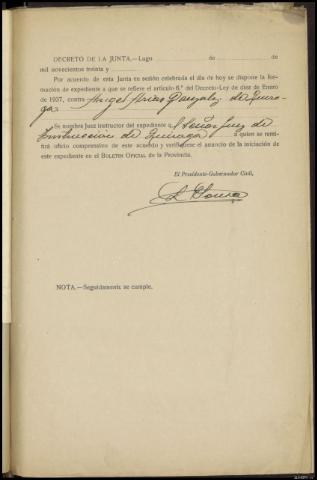 DECRETO DE LA JUNTA.—Lugo de de
mil novecientos treinta y
Por acuerdo de esta Junta en sesión celebrada el día de hoy se dispone la for-
mación de expediente a que se refiere el artículo 6.º del Decreto-Ley de diez de Enero
de 1937, contra Angel Arias Gonzalez de Quiro-
ga
Se nombra Juez instructor del expediente al Señor Juez de
Instrucción de Quiroga a quien se remi-
tirá oficio comprensivo de este acuerdo y verifíquese el anuncio de la iniciación de
este expediente en el BOLETIN OFICIAL de la Provincia.
El Presidente-Gobernador Civil,
NOTA.—Seguidamente se cumple.